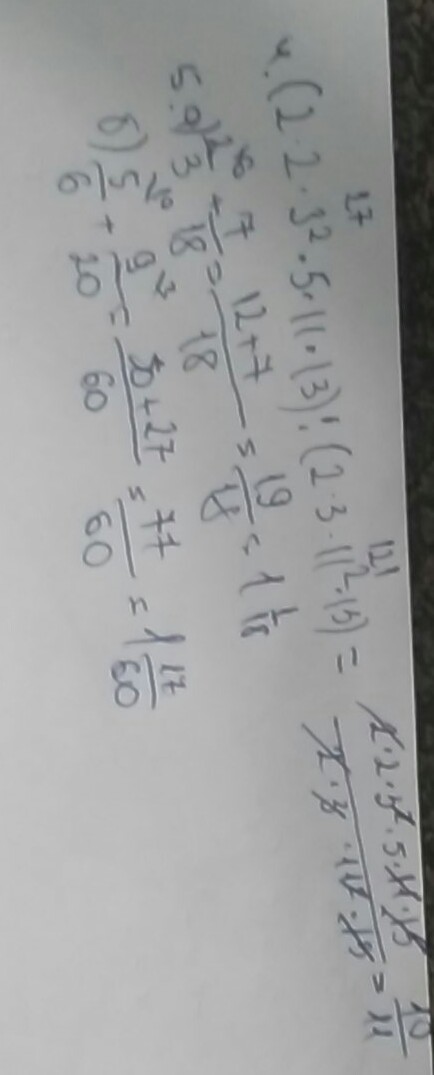 4. (2·2·3²·5·11·13):(2·3·11²·13) = 2·2·3²·5·11·13 / 2·3·11²·13 = 10/11
27 121
5. а) 2/3 + 7/18 = 12+7/18 = 19/18 = 1 1/18
б) 5/6 + 9/20 = 50+27/60 = 77/60 = 1 17/60